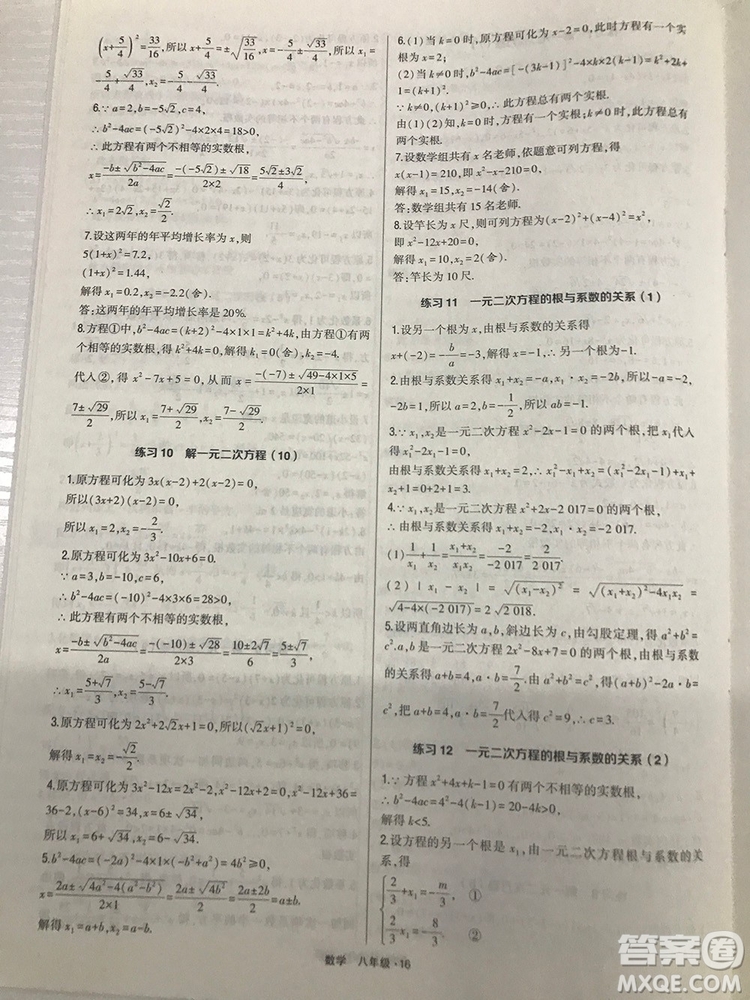 (x+5/4)²=33/16,所以x+5/4=±√(33/16),所以x₁=
-5/4+√33/4,x₂=-5/4-√33/4.
6.∵a=2,b=-5√2,c=4,
∴b²-4ac=(-5√2)²-4×2×4=18>0,
∴此方程有两个不相等的实数根,
x=(-b±√(b²-4ac))/2a=(-(-5√2)±√18)/(2×2)=(5√2±3√2)/4,
∴x₁=2√2,x₂=√2/2.
7.设这两年的年平均增长率为x,则
5(1+x)²=7.2,
(1+x)²=1.44,
解得x₁=0.2,x₂=-2.2(舍).
答:这两年的年平均增长率是20%.
8.方程①中,b²-4ac=k²-4×1×1=k²-4,由方程①有两
个相等的实数根,得k²-4=0,解得k₁=0(舍),k₂=-4.
代入②,得x²-7x+5=0,从而x=(-(-7)±√(49-4×1×5))/(2×1)=
(7±√29)/2,所以x₁=(7+√29)/2,x₂=(7-√29)/2.
练习10 解一元二次方程(10)
1.原方程可化为3x(x-2)+2(x-2)=0,
所以(3x+2)(x-2)=0,
所以x₁=2,x₂=-2/3.
2.原方程可化为3x²-10x+6=0.
∵a=3,b=-10,c=6,
∴b²-4ac=(-10)²-4×3×6=28>0,
∴此方程有两个不相等的实数根,
x=(-b±√(b²-4ac))/2a=(-(-10)±√28)/(2×3)=(10±2√7)/6=(5±√7)/3,
∴x₁=(5+√7)/3,x₂=(5-√7)/3.
3.原方程可化为2x²+2√2x+1=0,所以(√2x+1)²=0,
解得x₁=x₂=-√2/2.
4.原方程可化为3x²-12x=2x²-2,x²-12x=-2,x²-12x+36=
36-2,(x-6)²=34,所以x=6±√34,
所以x₁=6+√34,x₂=6-√34.
5.b²-4ac=(-2a)²-4×1×(a²-b²)=4b²≥0,
x=(2a±√(4a²-4(a²-b²)))/(2×1)=(2a±√(4b²))/2=(2a±2b)/2=a±b.
解得x₁=a+b,x₂=a-b.
6.(1)当k=0时,原方程可化为x-2=0,此时方程有实
根为x=2;
(2)当k≠0时,b²-4ac=[-(3k-1)]²-4k×2(k-1)=k²+2k+
1=(k+1)².
∵k≠0,∴(k+1)²≥0,∴此方程总有两个实根.
由(1)(2)知,k=0时,方程有一个实根;k≠0时,方程总有
两个实根.
7.设数学组共有x名老师,依题意可列方程,得
x(x-1)=210,即x²-x-210=0,
解得x₁=15,x₂=-14(舍).
答:数学组共有15名老师.
8.设竿长为x尺,则可列方程为(x-2)²+(x-4)²=x²,
即x²-12x+20=0.
解得x₁=10,x₂=2(舍).
答:竿长为10尺.
练习11 一元二次方程的根与系数的关系(1)
1.设另一个根为x,由根与系数的关系得
x+(-2)=-b/a=-3,解得x=-1.∴另一个根为-1.
2.由根与系数的关系得x₁+x₂=-a,x₁·x₂=-2b,所以-a=
-2,-2b=1,所以a=2,b=-1/2.所以bᵃ=(-1/2)²=1/4.
3.∵x₁,x₂是一元二次方程x²-2x-1=0的两个根.把x₁代入
得x₁²-2x₁-1=0,∴x₁²-x₁=x₁+1.
由根与系数关系得x₁+x₂=2,∴x₁²-x₁+x₂=(x₁+1)+x₂=
x₁+x₂+1=3.
4.∵x₁,x₂是一元二次方程x²+2x-2 017=0的两个根,
∴由根与系数关系得x₁+x₂=-2,x₁·x₂=-2 017.
(1)1/x₁+1/x₂=(x₁+x₂)/(x₁x₂)=-2/-2 017=2/2 017.
(2)|x₁-x₂|=√((x₁-x₂)²)=√((x₁+x₂)²-4x₁x₂)=
√(4-4×(-2 017))=2√2 018.
5.设两直角边长为a,b,斜边长为c,由勾股定理,得a²+b²=
c².a,b是一元二次方程2x²-8x+7=0的两个根,由根与系数
的关系得a+b=4,ab=7/2.由a²+b²=c²得(a+b)²-2ab=
c²,把a+b=4,ab=7/2代入得c²=9,∴c=3.
练习12 一元二次方程的根与系数的关系(2)
1.∵方程x²+4x+k-1=0有两个不相等的实数根,
∴b²-4ac=4²-4(k-1)=20-4k>0,
解得k<5.
2.设方程的另一个根是x₁,由一元二次方程根与系数的关
系,得
{2/3+x₁=-m/3, ①
-2/3x₁=-8/3. ②
数学 八年级·16
答案圈
MXQE.COM